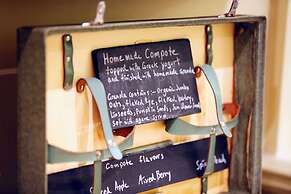 Homemade Compote
topped with Greek yogurt
and finished with homemade granola
Granola contains:- Organic Jumbo
Oats, flaked Rye, Flaked barley,
Linseeds, Pumpkin Seeds, Sun
set with agave syrup.
Compote Flavours
Apple Mixed Berry
Spiced